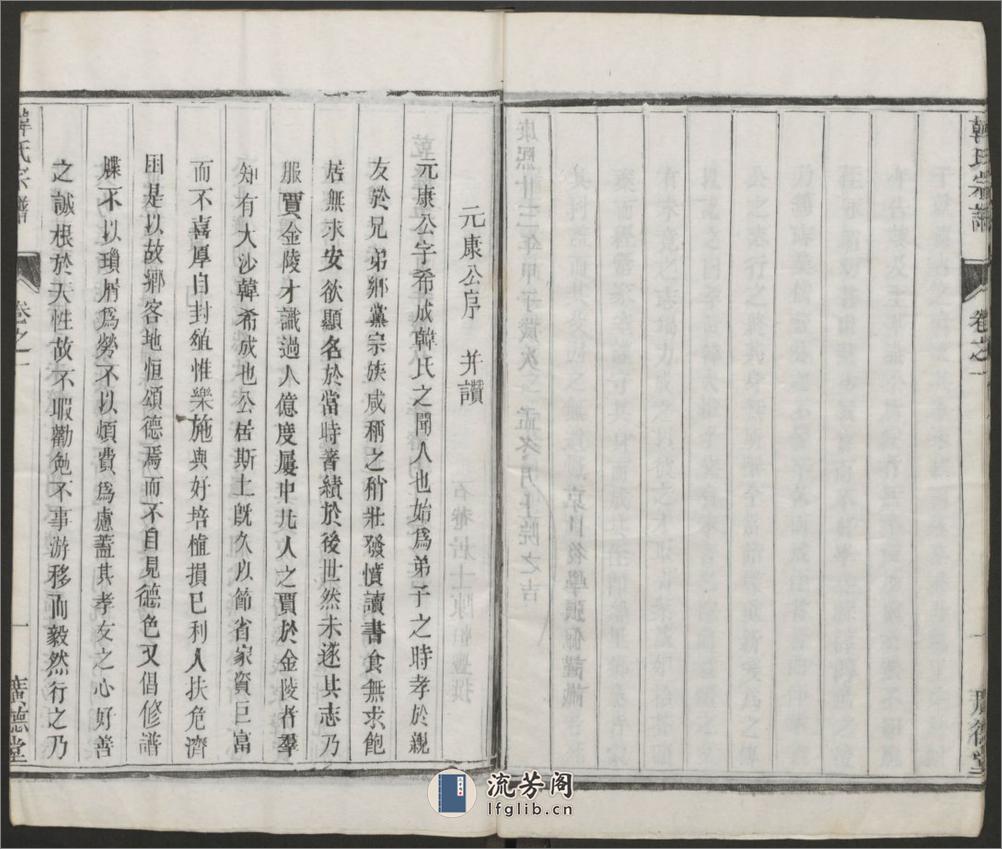 韓氏宗譜
卷之一
一
廣德堂
元康公序 并讚
元康公字希成韓氏之聞人也始爲弟子之時孝於親
友於兄弟鄉黨宗族咸稱之稍壯發憤讀書食無求飽
居無求安欲顯名於當時著績於後世然未遂其志乃
服賈金陵才識過人億度屢中凡人之賈於金陵者羣
知有大沙韓希成也公居斯土旣久以節省家資巨富
而不喜厚自封殖惟樂施與好培植損己利人扶危濟
困是以故鄉客地恒頌德焉而不自見德色又倡修譜
牒不以瑣屑爲勞不以煩費爲慮蓋其孝友之心好善
之誠根於天性故不暇勸勉不事游移而毅然行之乃
韓氏宗譜
卷之一
一
廣德堂
流芳阁
lfglib.cn